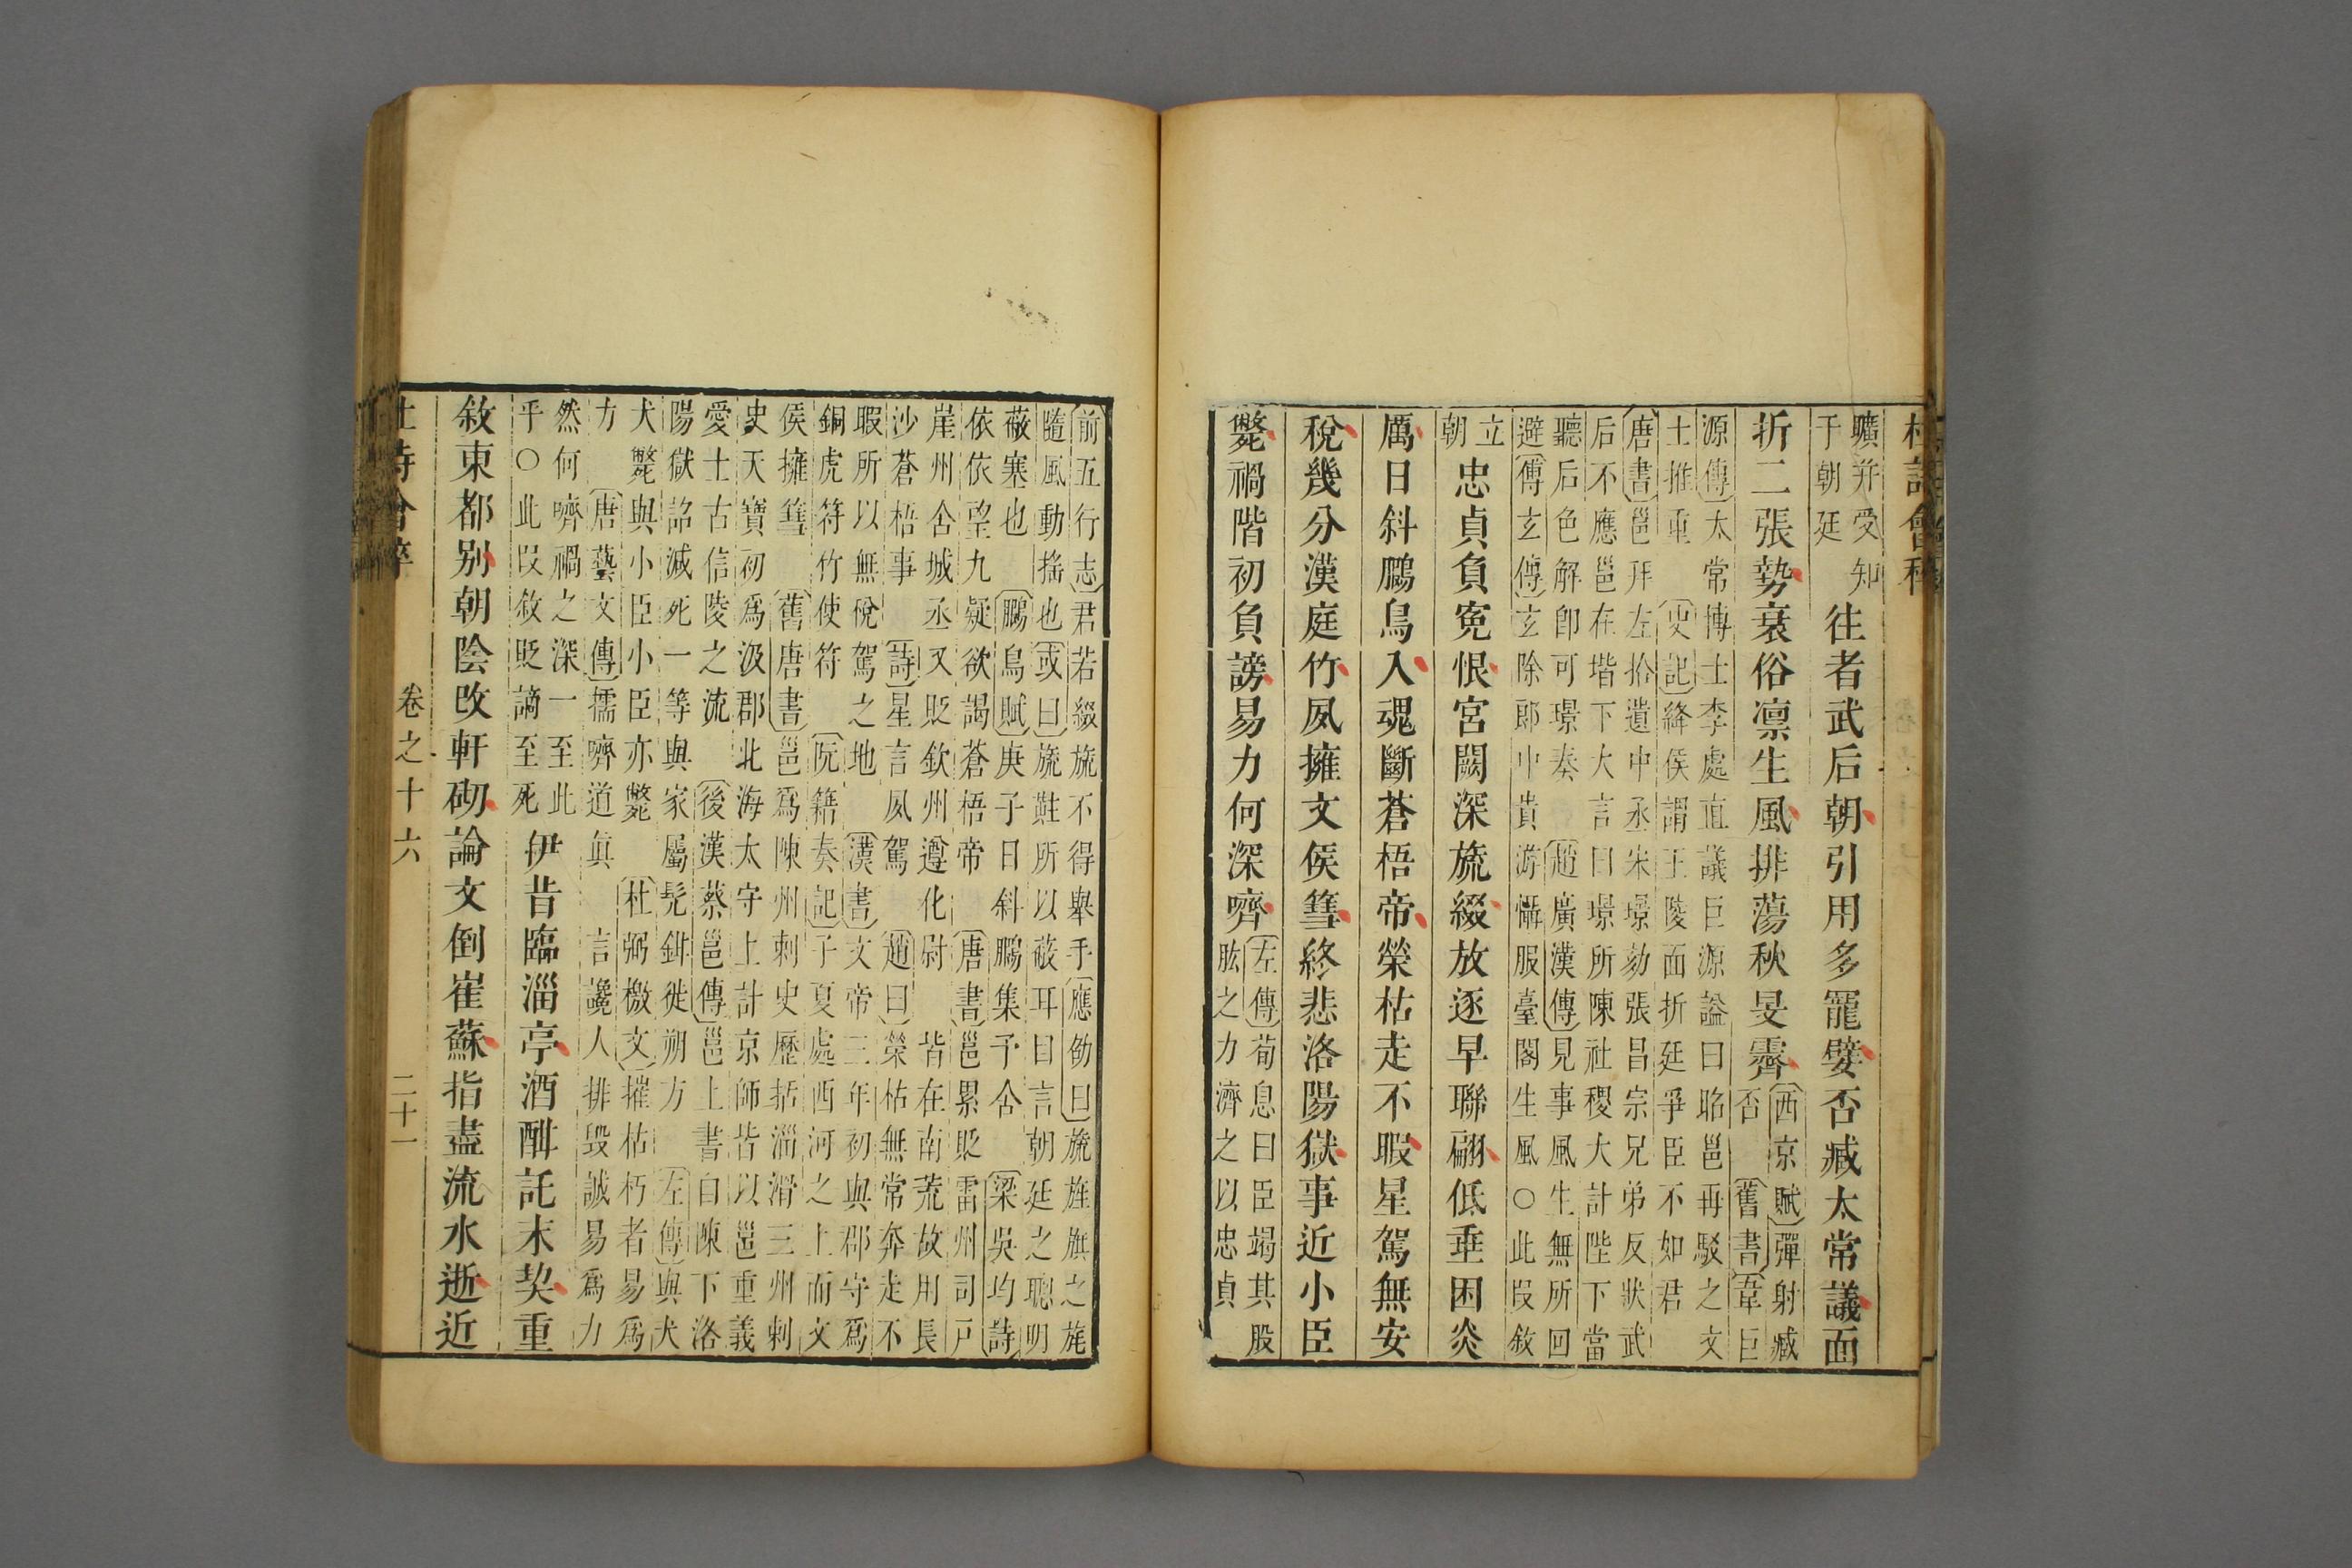 曠并受知
于朝廷
往者武后朝引用多寵嬖否臧太常議面
折二張勢衰俗凛生風排蕩秋旻霽
西京賦彈射臧
否 舊書韋巨
源傳太常博士李處直議巨源謚曰昭邕再駁之文
士推重 史記絳侯謂王陵面折廷爭臣不如君
唐書邕拜左拾遺中丞宋璟劾張昌宗兄弟反狀武
后不應邕在堦下大言曰璟所陳社稷大計陛下當
聽后色解卽可璟奏 趙廣漢傳見事風生無所回
避傅玄傳玄除郎中貴游懾服臺閣生風○此叚敘
立
朝
忠貞負寃恨宮闕深旒綴放逐早聯翩低垂困炎
厲日斜鵩鳥入魂斷蒼梧帝榮枯走不暇星駕無安
稅幾分漢庭竹夙擁文侯篲終悲洛陽獄事近小臣
斃禍階初負謗易力何深嚌
左傳荀息曰臣竭其股
肱之力濟之以忠貞
前五行志君若綴旒不得舉手應劭曰旒旌旗之旄
隨風動搖也或曰旒黈所以蔽耳曰言朝廷之聰明
蔽塞也 鵩鳥賦庚子日斜鵩集予舍 梁吳均詩
依依望九疑欲謁蒼梧帝 唐書邕累貶雷州司戸
崖州舍城丞又貶欽州遵化尉 皆在南荒故用長
沙蒼梧事 詩星言夙駕 趙曰榮枯無常奔走不
暇所以無稅駕之地 漢書文帝三年初與郡守爲
銅虎符竹使符 阮籍奏記子夏處西河之上而文
侯擁篲 舊唐書邕爲陳州刺史歷括淄滑三州刺
史天寶初爲汲郡北海太守上計京師皆以邕重義
愛士古信陵之流 後漢蔡邕傳邕上書自陳下洛
陽獄詔減死一等與家屬髠鉗徙朔方 左傳與犬
犬斃與小臣小臣亦斃 杜弼檄文摧枯朽者易爲
方 唐藝文傳擩嚌道眞 言讒人排毀誠易爲力
然何嚌禍之深一至此
乎○此叚敘貶謫至死
伊昔臨淄亭酒酣託末契重
敘東都别朝陰改軒砌論文倒崔蘇指盡流水逝近
卷之十六
二十一